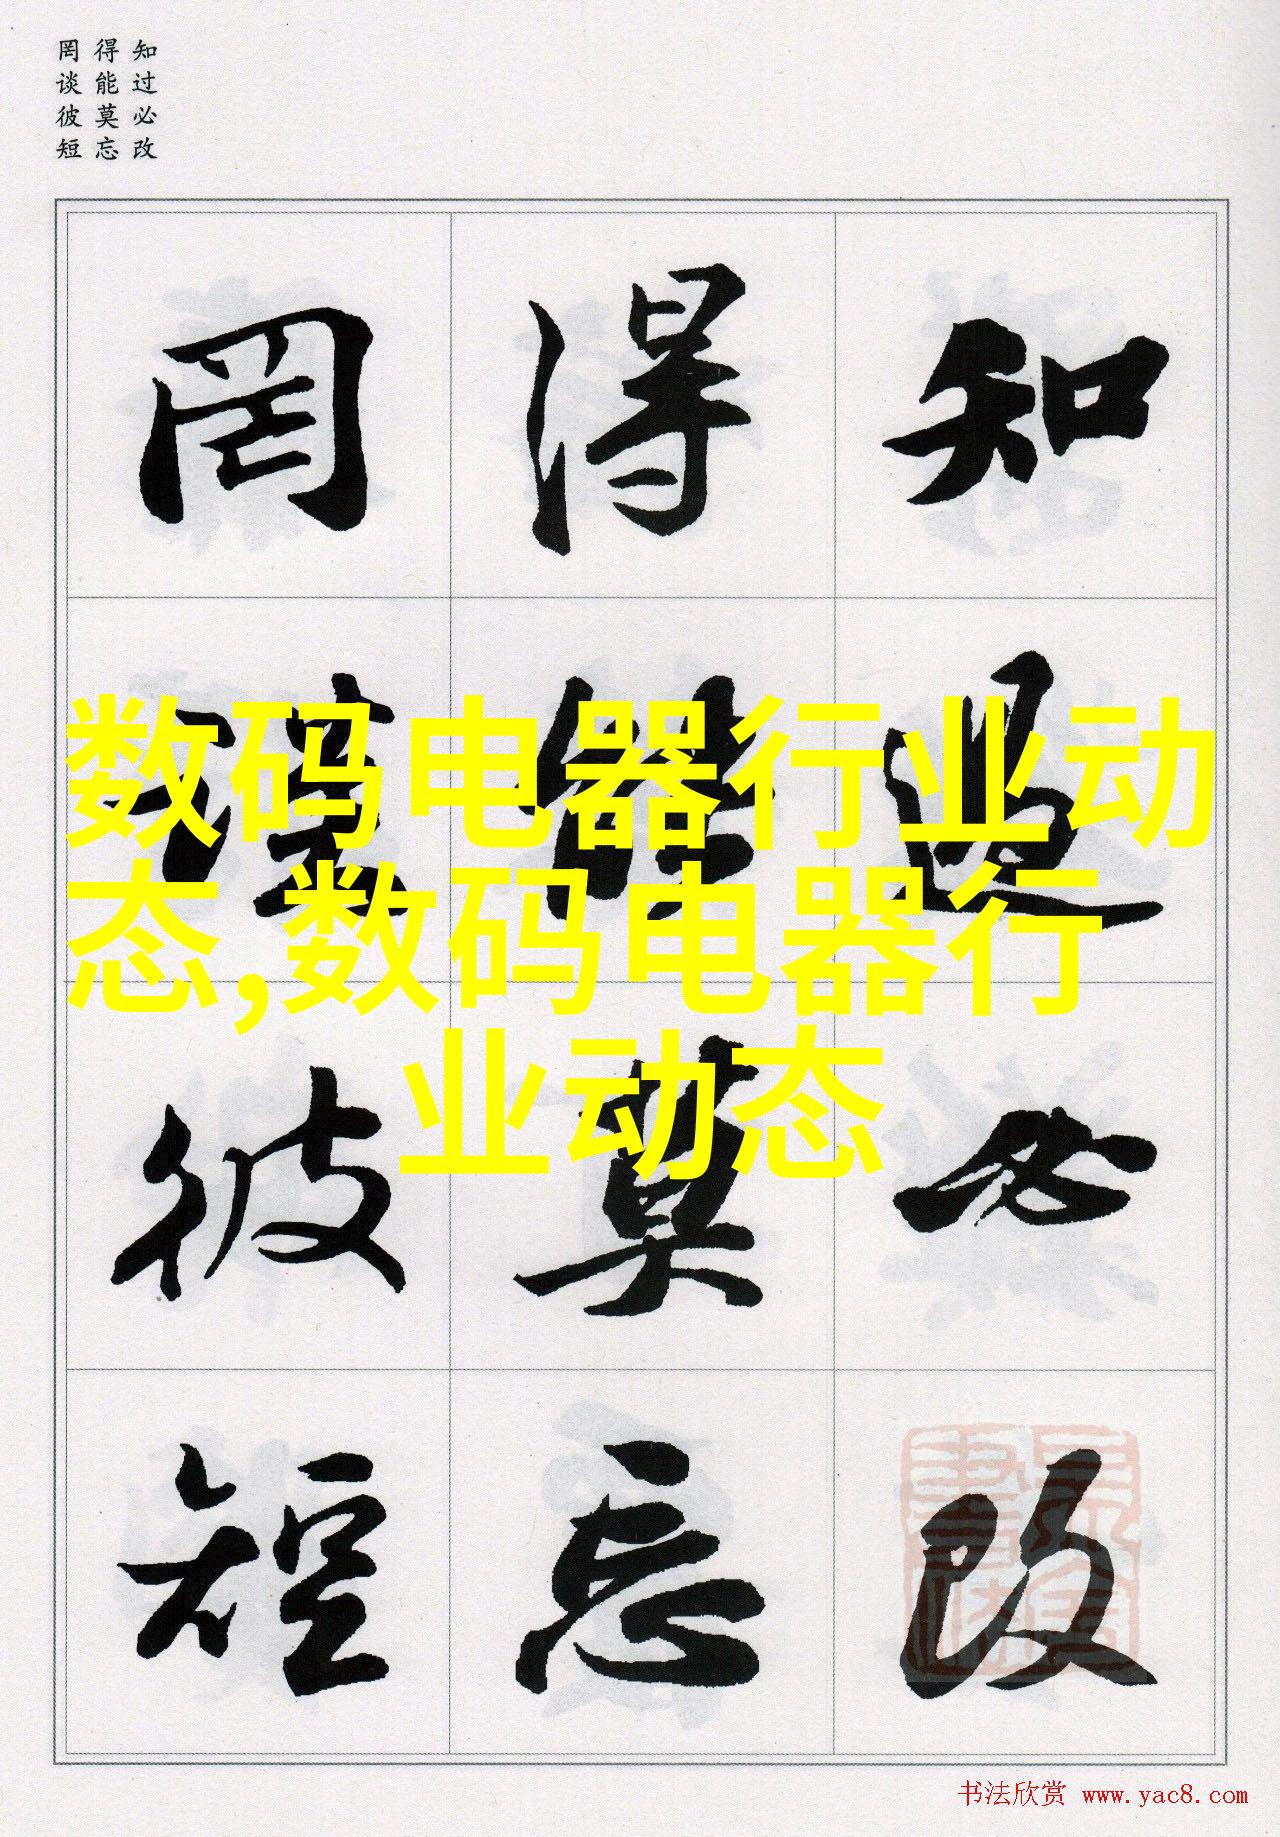 知过必改
得能莫忘
罔谈彼短
知过必改
得能莫忘
罔谈彼短
数码电器行业动
态,数码电器行
业动态
书法欣赏 www.yac8.com